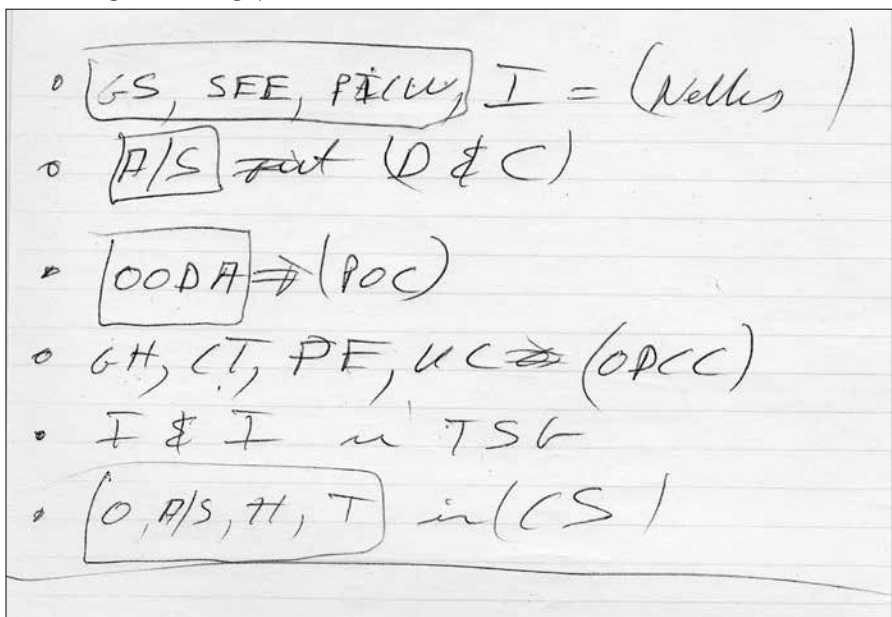 • GS, SFE, I = (Nellis )
• A/S (D & C)
• OODA ⇒ (POC)
• GH, CT, PE, UC ⇒ (OPCC)
• I & I in TSG
• O, A/S, H, T in (CS)